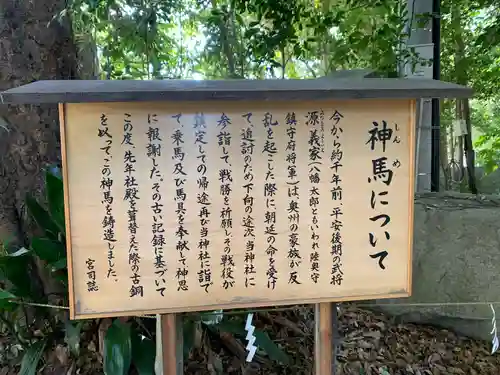 神馬について
しんめ
今から約九百年前、平安後期の武将
源義家(八幡太郎ともいわれ陸奥守
鎮守府将軍)は奥州の豪族が反
乱を起こした際に、朝廷の命を受け
て追討のため下向の途次当神社に
参詣して、戦勝を祈願しその戦役が
鎮定しての帰途再び当神社に詣で
て乗馬及び馬具を奉献して神恩
に報謝した。その古い記録に基づいて
この度、先年社殿を葺替えた際の古銅
を以ってこの神馬を鋳造しました。
宮司誌